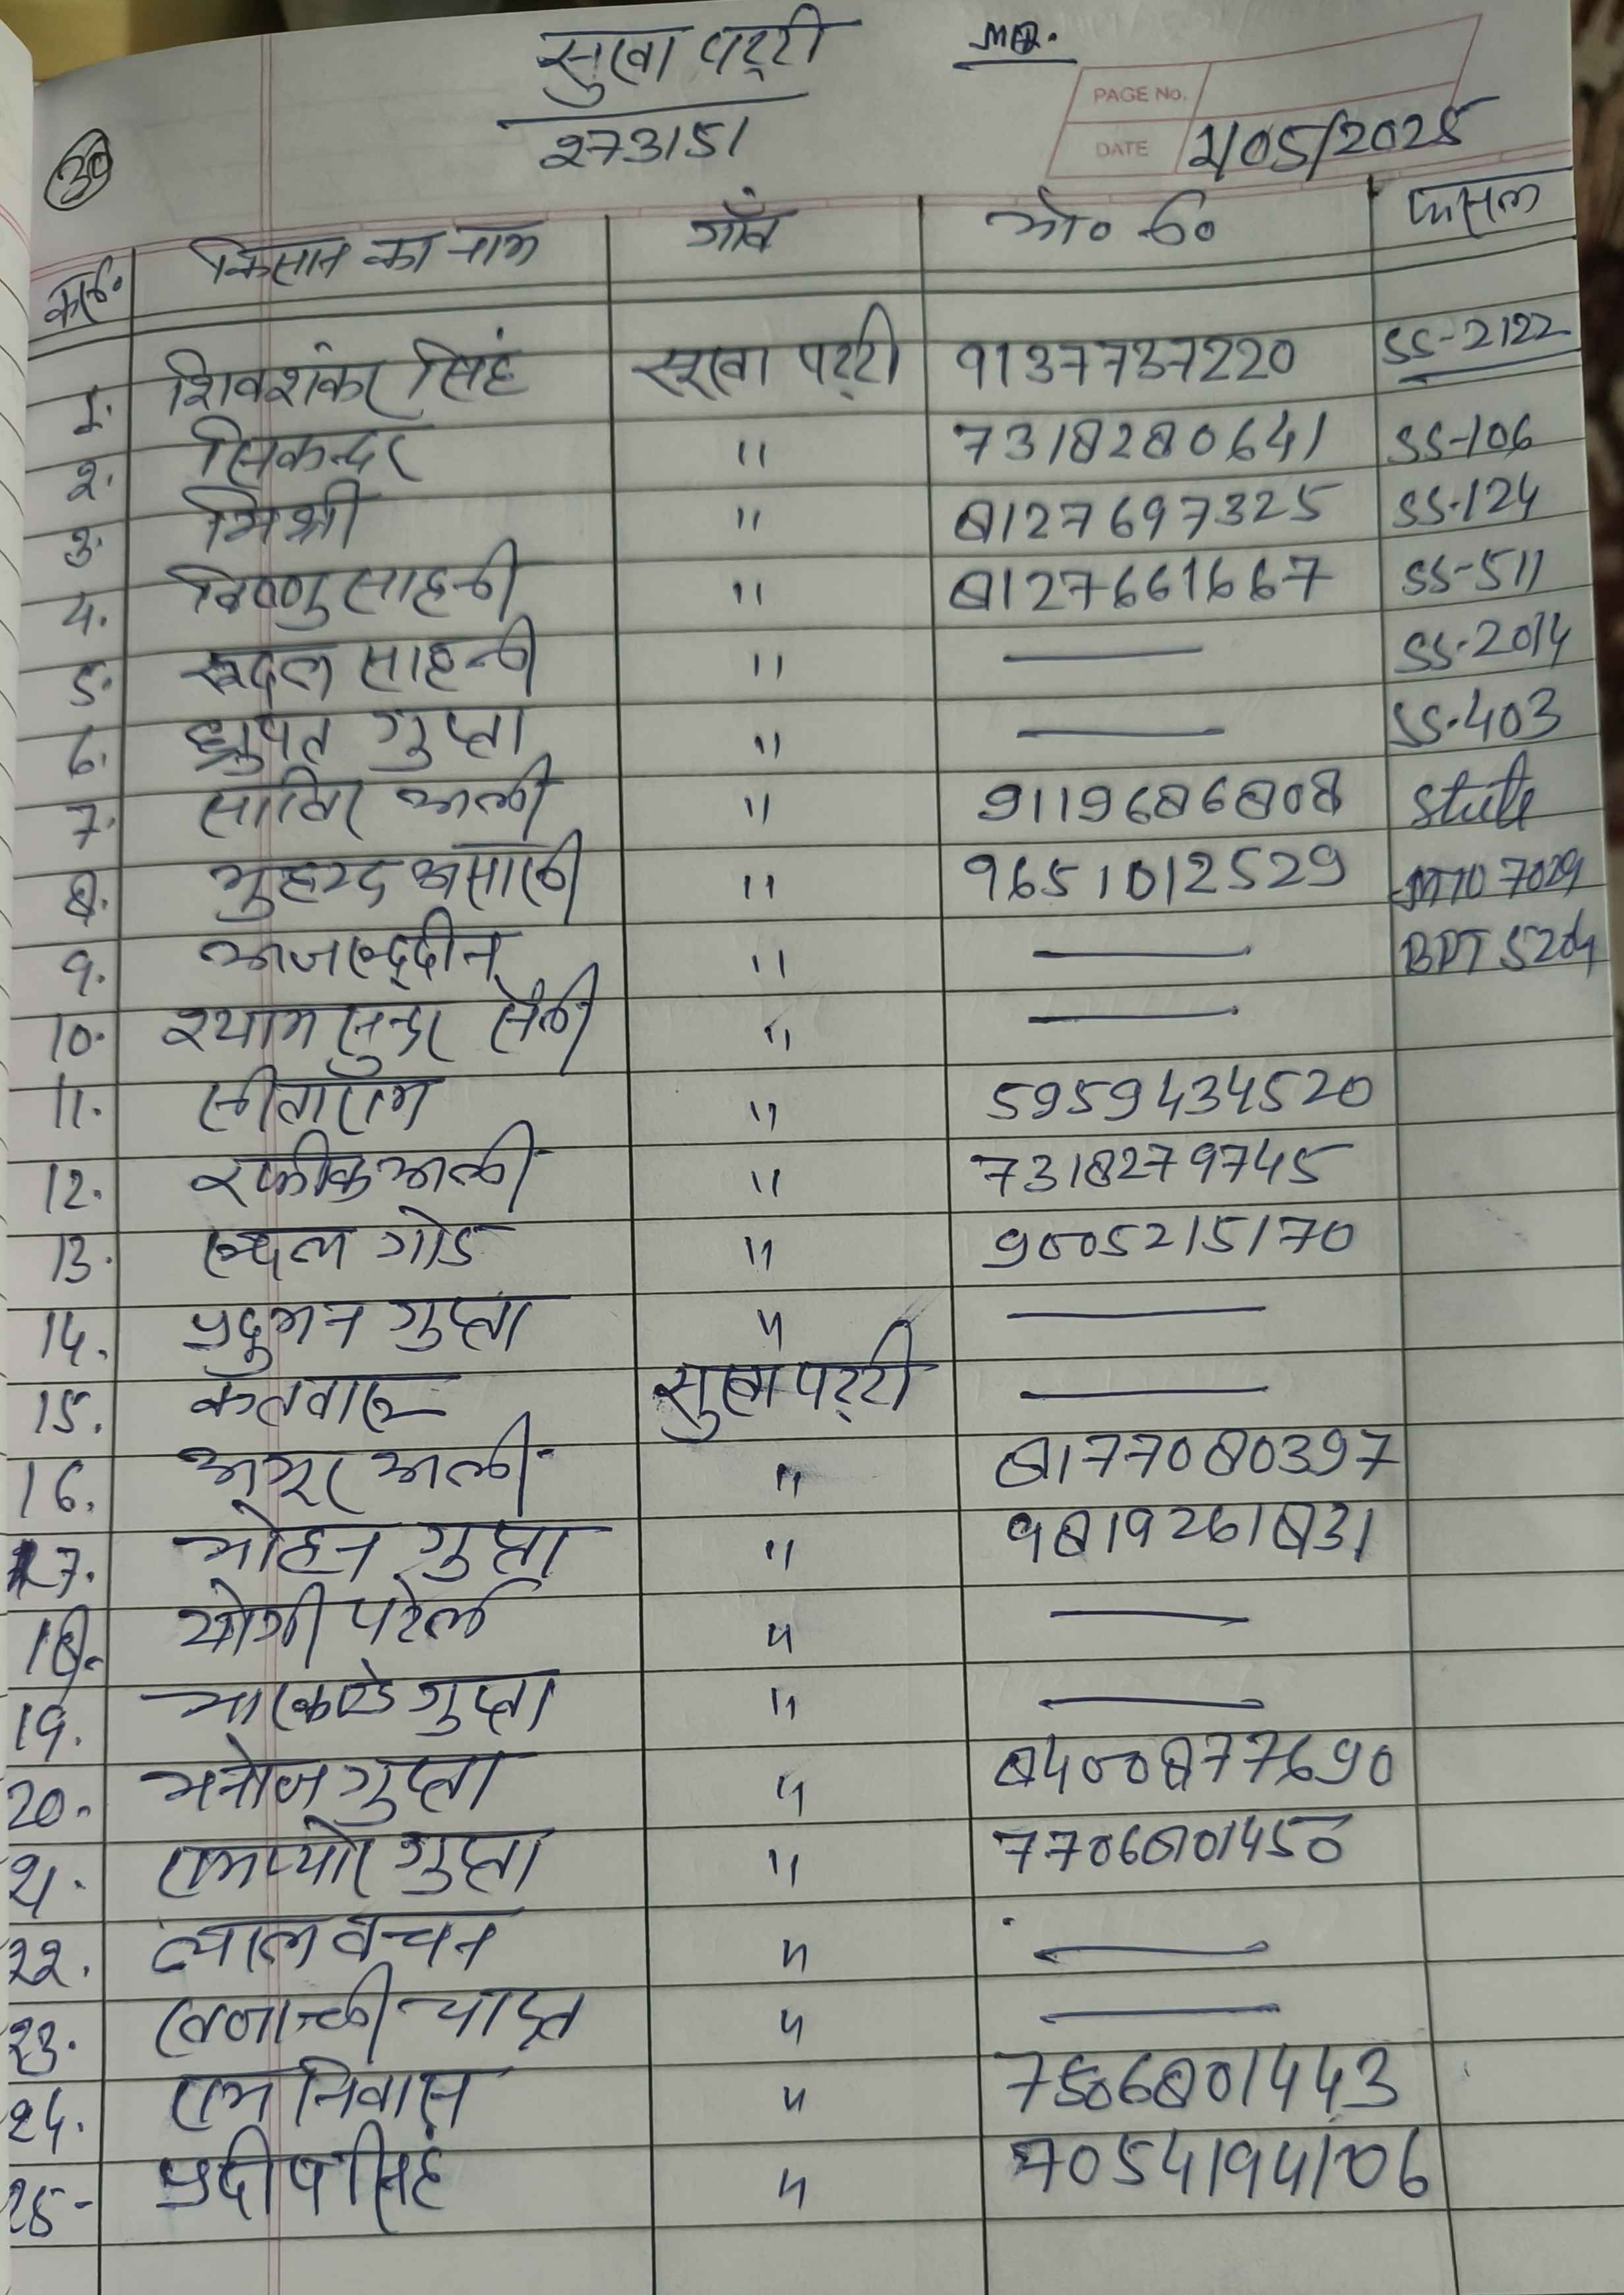 सुखा पट्टी MR.
273151
PAGE No.
DATE 2/05/2025
30
क्र०सं० किसान का नाम गाँव मो० नं० फसल
1. शिवशंकर सिंह सूखा पट्टी 9137737220 SS-2122
2. सिकन्दर " 7318280641 SS-106
3. मिश्री " 8127697325 SS-124
4. विष्णु साहनी " 8127661667 SS-511
5. रूदल साहनी " — SS-2014
6. ध्रुपत गुप्ता " — SS-403
7. साबिर अली " 9119686808
8. मुहम्मद असाली " 9651012529 MTU 7029
9. " — BPT 5204
10. श्याम सुन्दर सैनी " —
11. सीताराम " 5959434520
12. रफीक अली " 7318279745
13. रूदल गोड " 9005215170
14. प्रदुमन गुप्ता " —
15. कतवारू सुखा पट्टी —
16. " 8177080397
17. मोहन गुप्ता " 9819261831
18. योगी पटेल " —
19. मारकण्डे गुप्ता " —
20. मनोज गुप्ता " 8400877690
21. रामप्यारे गुप्ता " 7706801450
22. व्यास वचन " —
23. " —
24. राम निवास " 7506801443
25- प्रदीप सिंह " 7054194106